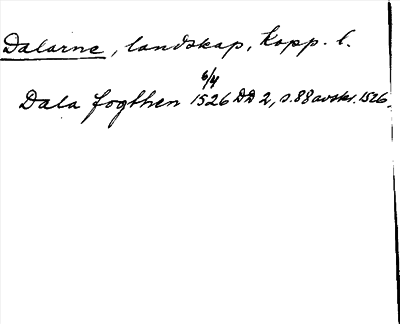 Dalarne, landskap, Kopp. l.
6/4
Dala fogthen 1526 DD 2, s. 88 avskr. 1526.